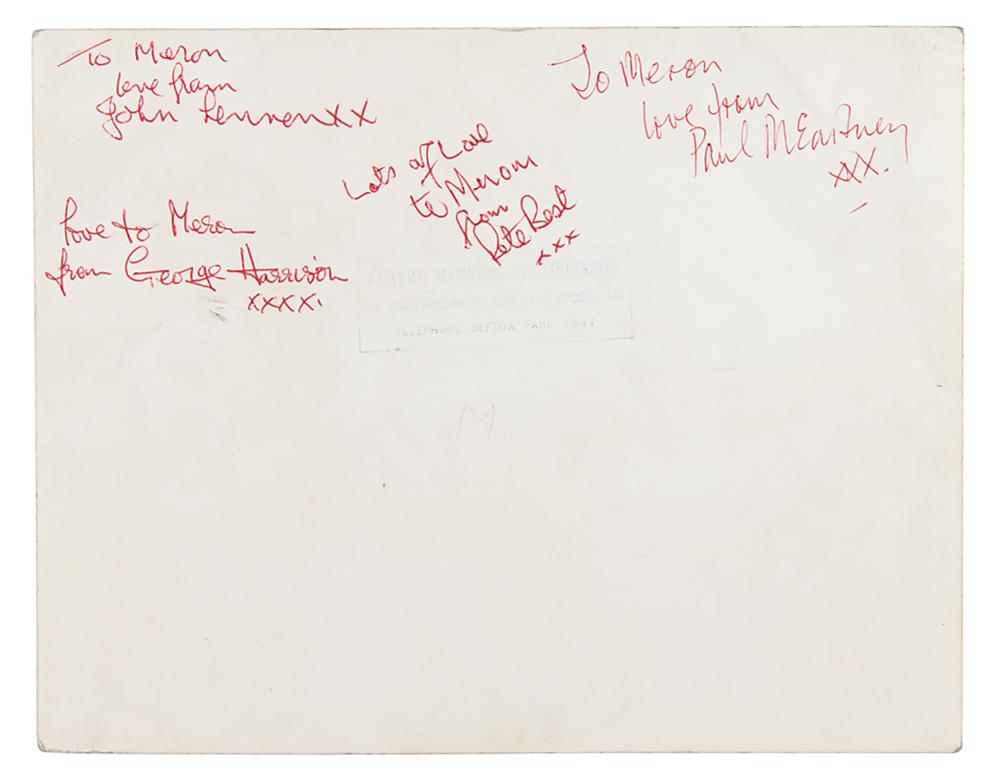 To Meron
love from
John Lennon XX
To Meron
love from
Paul McCartney
XXX.
Lots of Love
to Meron
from
Pete Best
xxx
love to Meron
from George Harrison
xxxx.
ALBERT MARRION PHOTOGRAPHY
SMITHDOWN PLACE, LIVERPOOL, 15.
TELEPHONE SEFTON PARK
M.